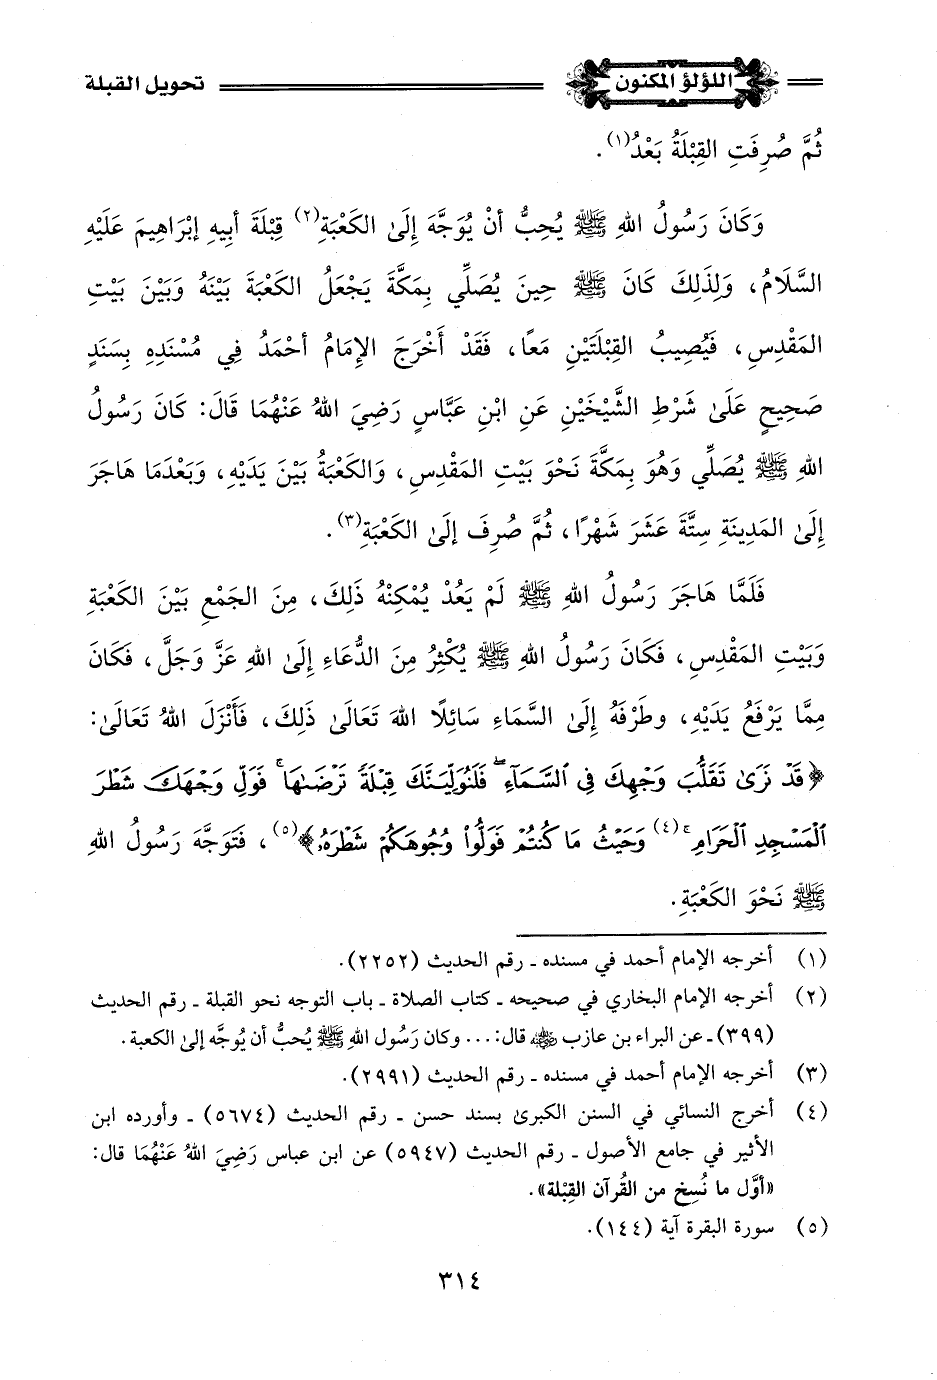 اللؤلؤ المكنون
تحويل القبلة
ثُمَّ صُرِفَتِ القِبْلَةُ بَعْدُ(١).
وَكَانَ رَسُولُ اللهِ ﷺ يُحِبُّ أنْ يُوَجَّهَ إِلَىٰ الكَعْبَةِ(٢) قِبْلَةَ أبِيهِ إبْرَاهِيمَ عَلَيْهِ
السَّلَامُ، وَلِذَلِكَ كَانَ ﷺ حِينَ يُصَلِّي بِمَكَّةَ يَجْعَلُ الكَعْبَةَ بَيْنَهُ وَبَيْنَ بَيْتِ
المَقْدِسِ، فَيُصِيبُ القِبْلَتَيْنِ مَعًا، فَقَدْ أَخْرَجَ الإِمَامُ أحْمَدُ فِي مُسْنَدِهِ بِسَنَدٍ
صَحِيحٍ عَلَىٰ شَرْطِ الشَّيْخَيْنِ عَنِ ابْنِ عَبَّاسٍ رَضِيَ اللهُ عَنْهُمَا قَالَ: كَانَ رَسُولُ
اللهِ ﷺ يُصَلِّي وَهُوَ بِمَكَّةَ نَحْوَ بَيْتِ المَقْدِسِ، وَالكَعْبَةُ بَيْنَ يَدَيْهِ، وَبَعْدَمَا هَاجَرَ
إِلَىٰ المَدِينَةِ سِتَّةَ عَشَرَ شَهْرًا، ثُمَّ صُرِفَ إلَىٰ الكَعْبَةِ(٣).
فَلَمَّا هَاجَرَ رَسُولُ اللهِ ﷺ لَمْ يَعُدْ يُمْكِنْهُ ذَلِكَ، مِنَ الجَمْعِ بَيْنَ الكَعْبَةِ
وَبَيْتِ المَقْدِسِ، فَكَانَ رَسُولُ اللهِ ﷺ يُكْثِرُ مِنَ الدُّعَاءِ إِلَىٰ اللهِ عَزَّ وَجَلَّ، فَكَانَ
مِمَّا يَرْفَعُ يَدَيْهِ، وطَرْفَهُ إِلَىٰ السَّمَاءِ سَائِلًا اللهَ تَعَالَىٰ ذَلِكَ، فَأَنْزَلَ اللهُ تَعَالَىٰ:
﴿قَدْ نَرَىٰ تَقَلُّبَ وَجْهِكَ فِي ٱلسَّمَآءِۖ فَلَنُوَلِّيَنَّكَ قِبْلَةً تَرْضَىٰهَاۚ فَوَلِّ وَجْهَكَ شَطْرَ
ٱلْمَسْجِدِ ٱلْحَرَامِۚ(٤) وَحَيْثُ مَا كُنتُمْ فَوَلُّوا۟ وُجُوهَكُمْ شَطْرَهُۥ﴾(٥)، فَتَوَجَّهَ رَسُولُ اللهِ
ﷺ نَحْوَ الكَعْبَةِ.
(١) أخرجه الإمام أحمد في مسنده - رقم الحديث (٢٢٥٢).
(٢) أخرجه الإمام البخاري في صحيحه - كتاب الصلاة - باب التوجه نحو القبلة - رقم الحديث
(٣٩٩) - عن البراء بن عازب ﵁ قال: ... وكان رَسُول اللهِ ﷺ يُحبُّ أن يُوجَّه إلىٰ الكعبة.
(٣) أخرجه الإمام أحمد في مسنده - رقم الحديث (٢٩٩١).
(٤) أخرج النسائي في السنن الكبرىٰ بسند حسن - رقم الحديث (٥٦٧٤) - وأورده ابن
الأثير في جامع الأصول - رقم الحديث (٥٩٤٧) عن ابن عباس رَضِيَ اللهُ عَنْهُمَا قال:
«أوَّل ما نُسِخ من القُرآن القِبْلة».
(٥) سورة البقرة آية (١٤٤).
٣١٤